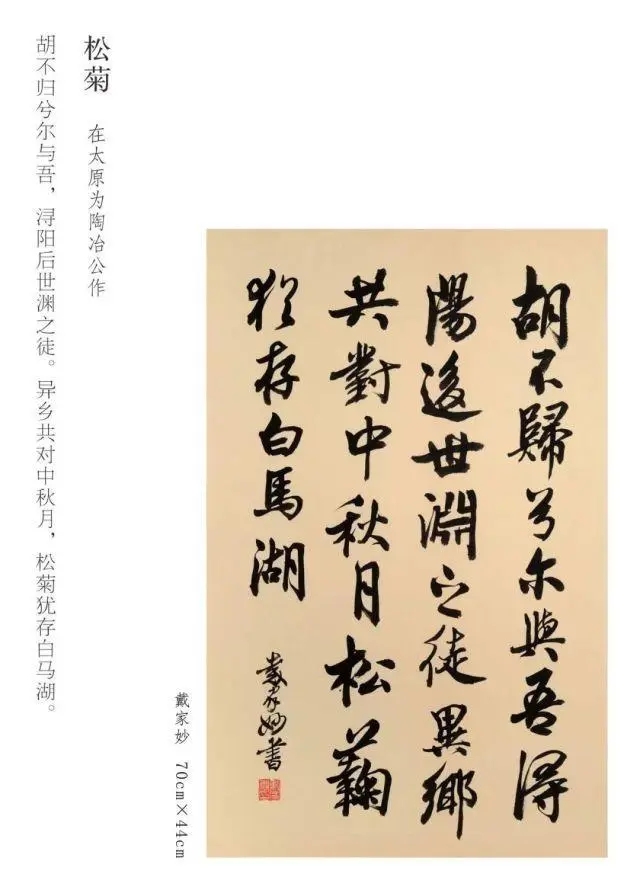 松菊
在太原为陶冶公作
胡不归兮尔与吾，浔阳后世渊之徒。异乡共对中秋月，松菊犹存白马湖。
胡不歸兮尔與吾浔
陽後世淵之徒異鄉
共對中秋月松蘜
猶存白馬湖
家妙書
戴家妙 70cm×44cm